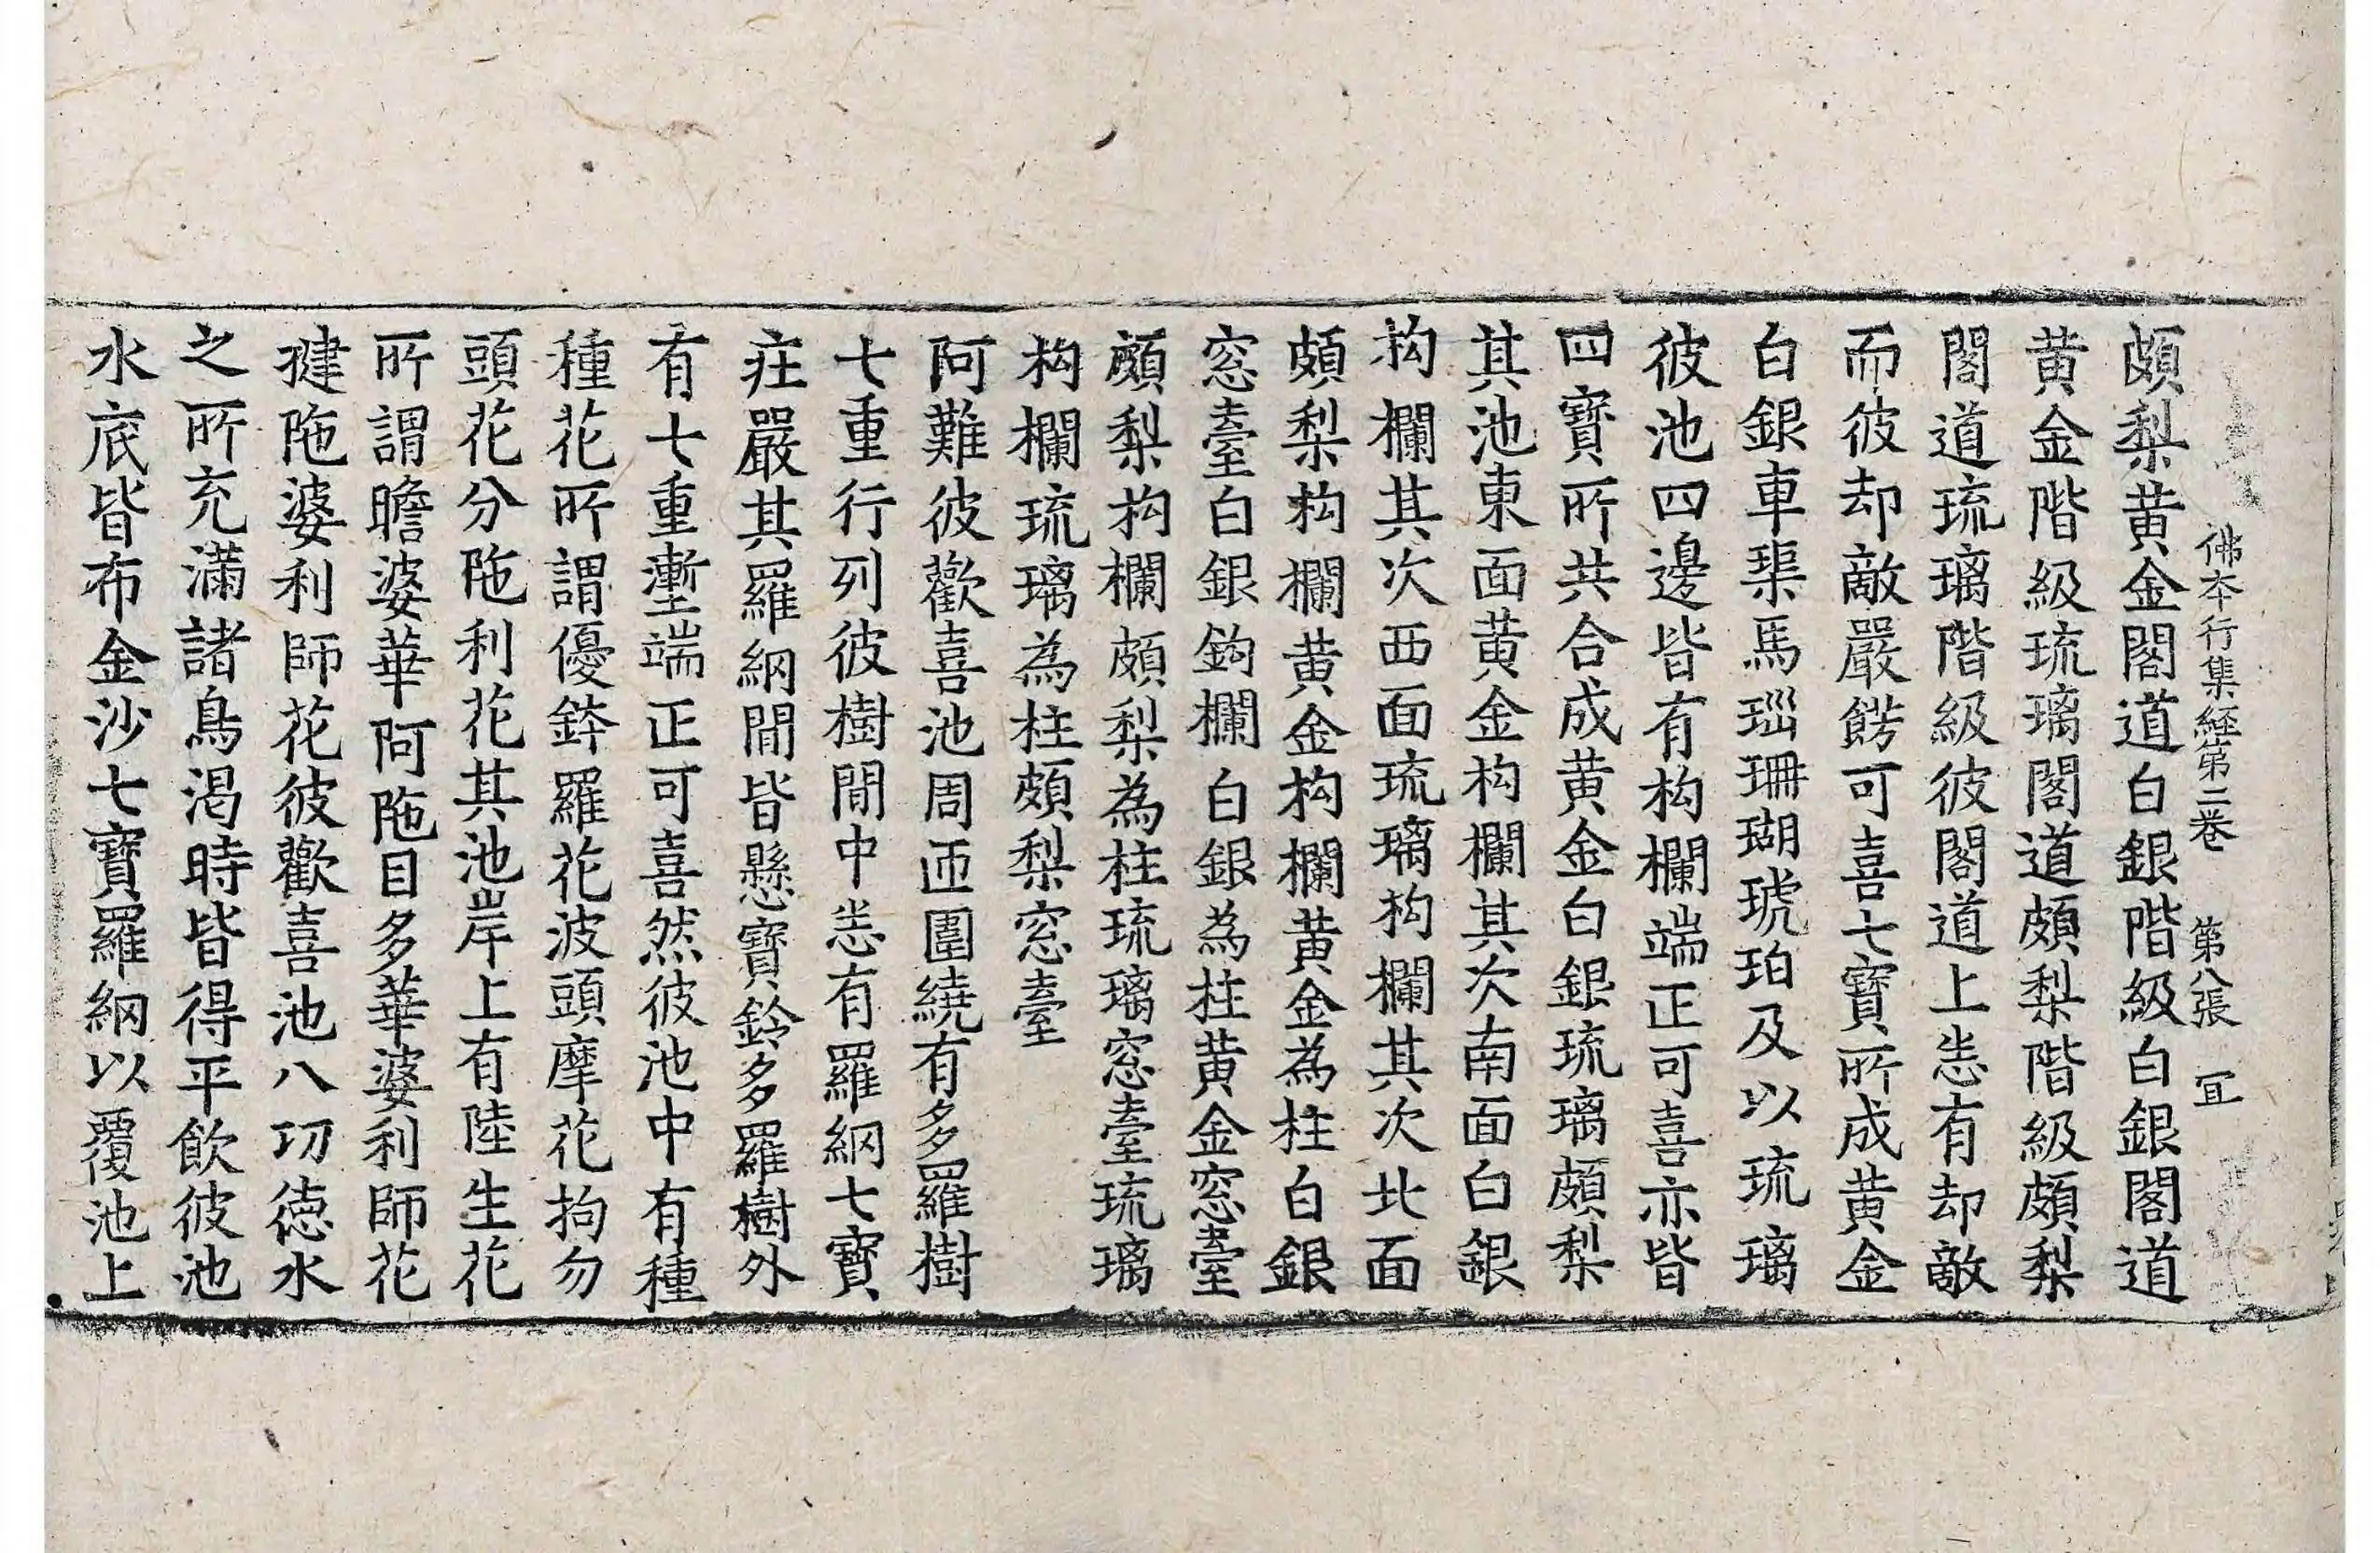 佛本行集経第二巻 第八張 冝
頗梨黄金閣道白銀階級白銀閣道
黄金階級琉璃閣道頗梨階級頗梨
閣道琉璃階級彼閣道上悉有却敵
而彼却敵嚴餝可喜七寶所成黄金
白銀車𤦲馬瑙珊瑚琥珀及以琉璃
彼池四邊皆有构欄端正可喜亦皆
四寶所共合成黄金白銀琉璃頗梨
其池東面黄金构欄其次南面白銀
构欄其次西面琉璃构欄其次北面
頗梨构欄黄金构欄黄金為柱白銀
窓臺白銀鈎欄白銀為柱黄金窓臺
頗梨构欄頗梨為柱琉璃窓臺琉璃
构欄琉璃為柱頗梨窓臺
阿難彼歡喜池周迊圍繞有多羅樹
七重行列彼樹閒中悉有羅網七寶
莊嚴其羅網閒皆懸寶鈴多羅樹外
有七重壍端正可喜然彼池中有種
種花所謂優鉢羅花波頭摩花拘勿
頭花分陁利花其池岸上有陸生花
所謂瞻婆華阿陁目多華婆利師花
揵陁婆利師花彼歡喜池八功徳水
之所充滿諸鳥渴時皆得平飲彼池
水底皆布金沙七寶羅網以覆池上